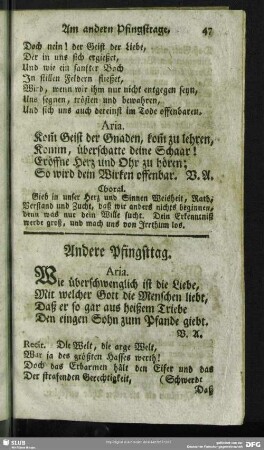 Am andern Pfingsttage. 47
Doch nein! der Geist der Liebe,
Der in uns sich ergießet,
Und wie ein sanfter Bach
In stillen Feldern fließet,
Wird, wenn wir ihm nur nicht entgegen seyn,
Uns segnen, trösten und bewahren,
Und sich uns auch dereinst im Tode offenbaren.
Aria.
Kom̃ Geist der Gnaden, kom̃ zu lehren,
Komm, überschatte deine Schaar!
Eröffne Herz und Ohr zu hören;
So wird dein Wirken offenbar. V. A.
Choral.
Gieb in unser Herz und Sinnen Weisheit, Rath,
Verstand und Zucht, daß wir anders nichts beginnen,
denn was nur dein Wille sucht. Dein Erkenntniß
werde groß, und mach uns von Irrthum los.
Andere Pfingsttag.
Aria.
Wie überschwenglich ist die Liebe,
Mit welcher Gott die Menschen liebt,
Daß er so gar aus heissem Triebe
Den eingen Sohn zum Pfande giebt.
V. A.
Recit. Die Welt, die arge Welt,
War ja des größten Hasses werth!
Doch das Erbarmen hält den Eifer und das
Der strafenden Gerechtigkeit, (Schwerdt
Daß
SLUB
DFG